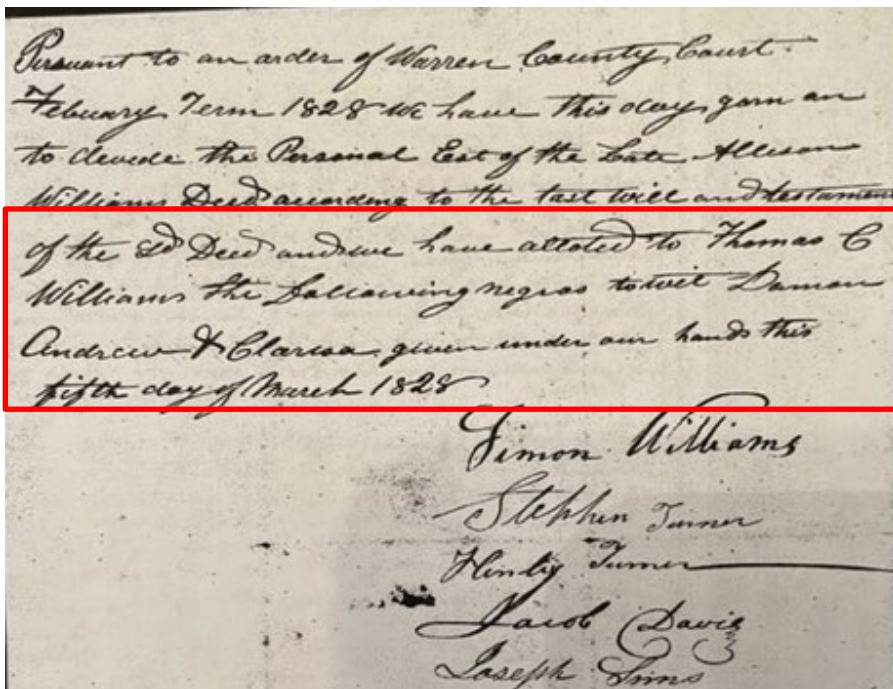 Persuant to an order of Warren County Court
Febuary Term 1828 We have this day gorn on
to devede the Personal Est of the Late Allison
Williams Deed according to the last will and testament
of the sd Deed and we have alloted to Thomas C
Williams the following negros towit Damon
Andrew & Clarisa given under our hands this
fifth day of March 1828
Simon Williams
Stephen Turner
Henly Turner
Jacob Davis
Joseph Sims